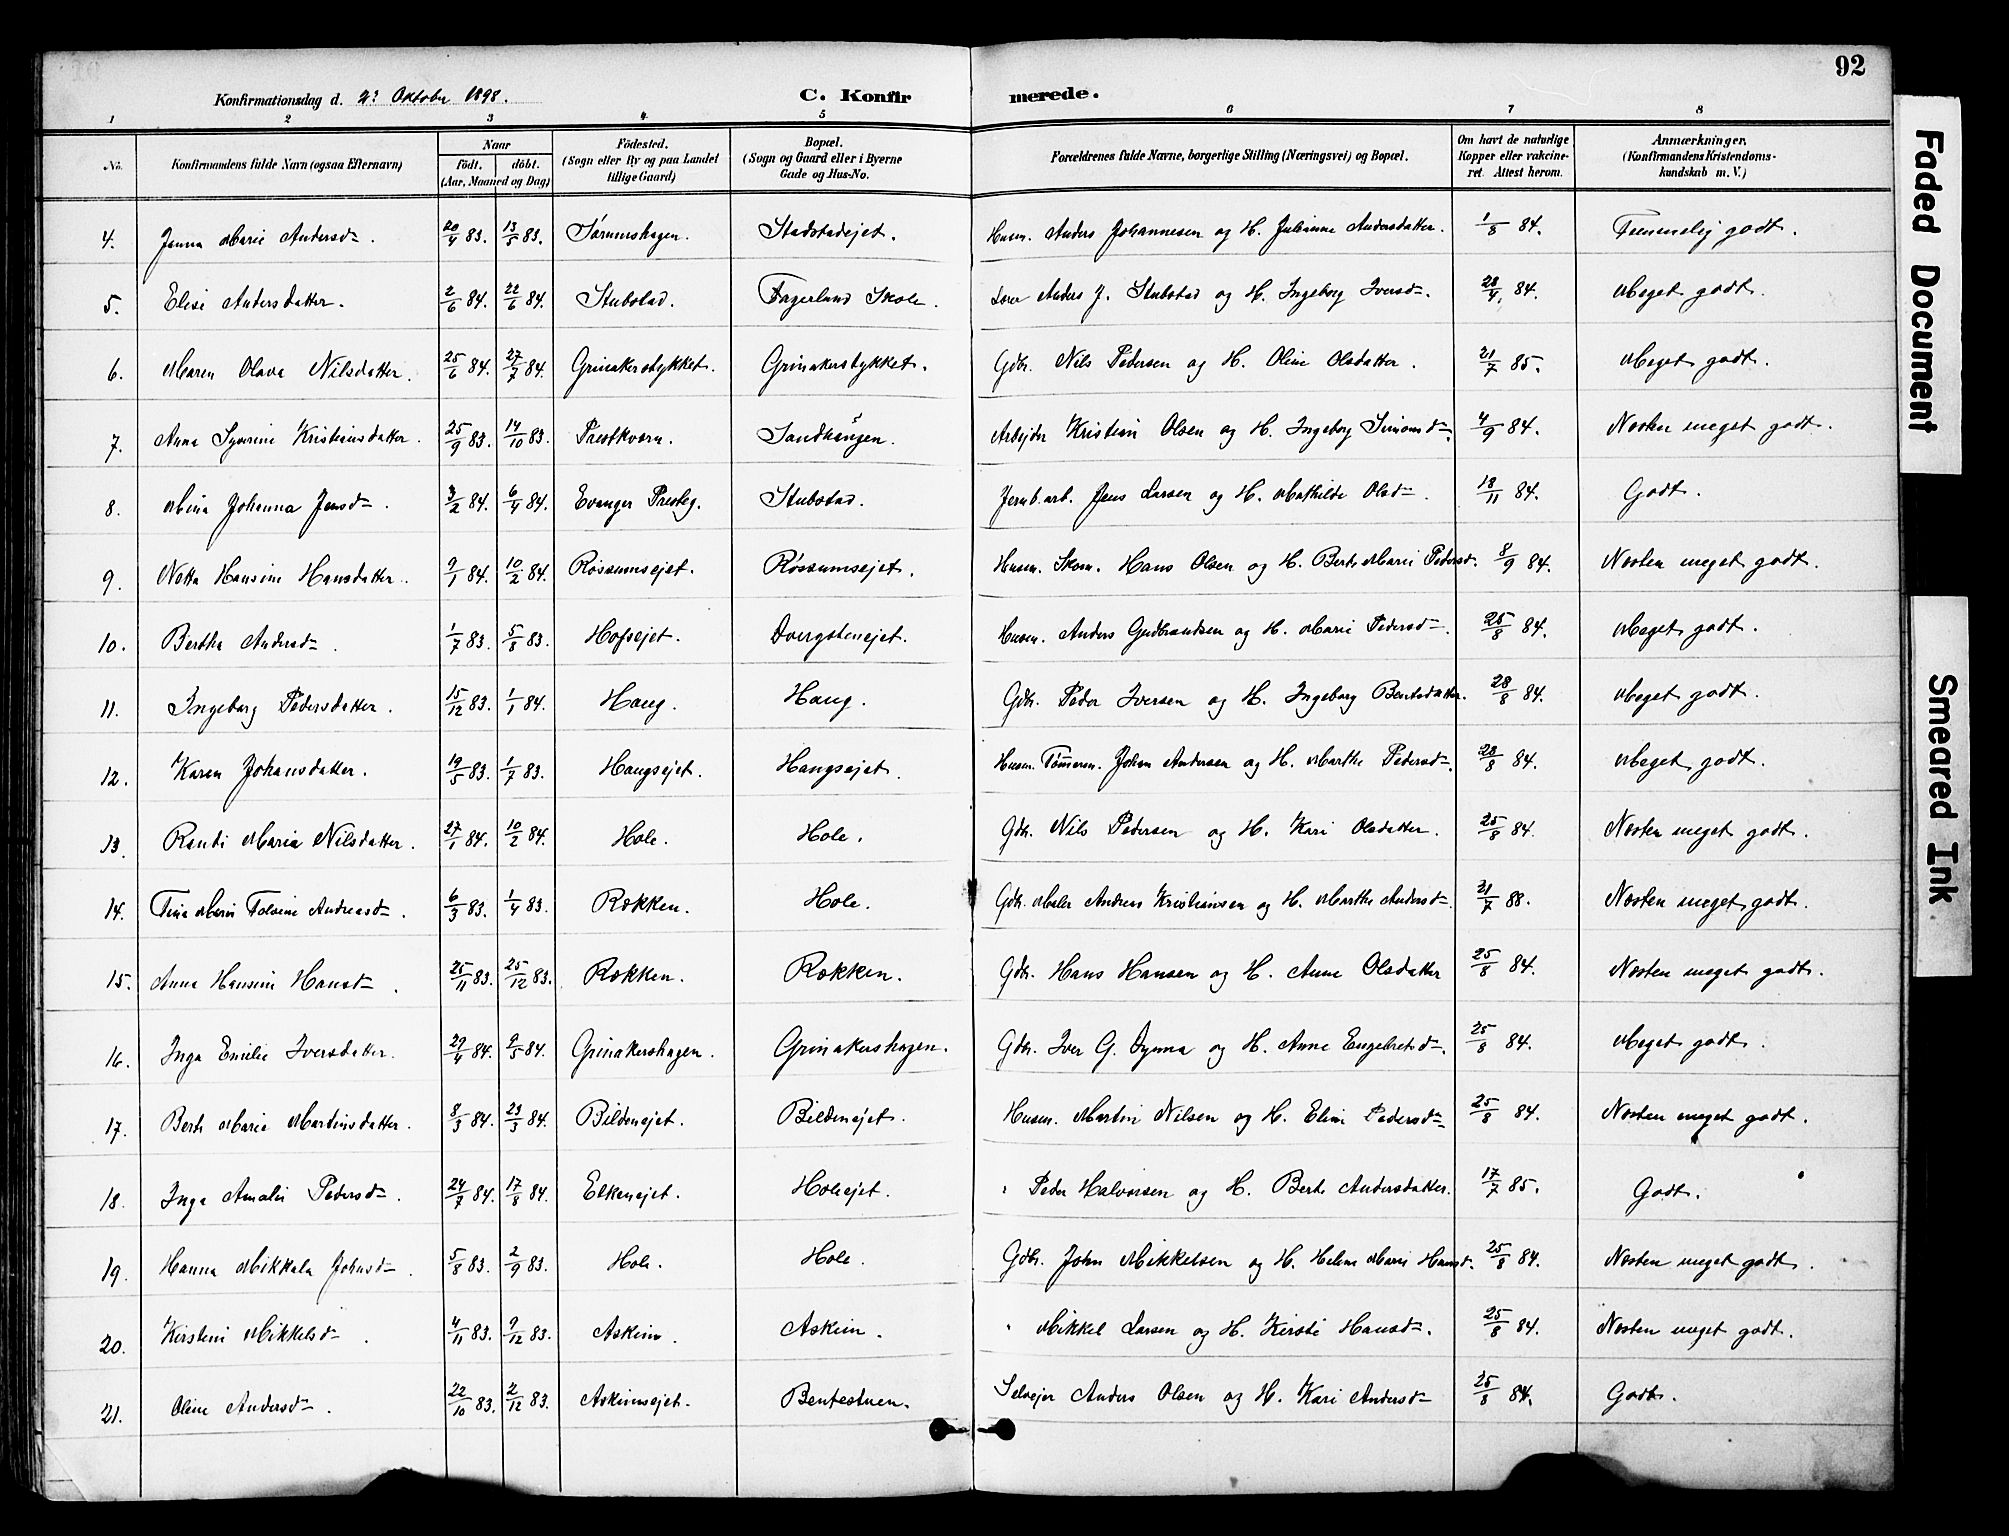 92
Konfirmationsdag d. 2? Oktober 1898. C. Konfirmerede.
1 2 3 4 5 6 7 8
No. Konfirmandens fulde Navn (ogsaa Efternavn) Naar födt. döbt. (Aar, Maaned og Dag) Födested. (Sogn eller By og paa Landet tillige Gaard) Bopæl. (Sogn og Gaard eller i Byerne Gade og Hus-No. Forældrenes fulde Navne, borgerlige Stilling (Næringsvei) og Bopæl. Om havt de naturlige Kopper eller vakcineret. Attest herom. Anmærkninger. (Konfirmandens Kristendomskundskab m. V.)
4. Jenna Marie Andersd. 20/4 83. 13/5 83. Sørumshagen. Stadstadejet. Husm. Anders Johannesen og H. Julianne Andersdatter. 1/8 84. Temmelig godt.
5. Elise Andersdatter. 2/6 84. 22/6 84. Stubstad. Fagerlund Skole. Lærer Anders J. Stubstad og H. Ingeborg Iversd. 28/4 84. Meget godt.
6. Maren Olava Nilsdatter. 25/6 84. 27/7 84. Grinakerstykket. Grinakerstykket. Gdbr. Nils Pedersen og H. Oline Olsdatter. 21/7 85. Meget godt.
7. Anna Syverine Kristiansdatter. 25/9 83. 14/10 83. Prestkværn. Sandhaugen. Arbejder Kristian Olsen og H. Ingeborg Simonsd. 4/9 84. Næsten meget godt.
8. Mina Johanna Jensd. 3/2 84. 6/4 84. Evanger Presteg. Stubstad. Jernb.arb. Jens Larsen og H. Mathilde Olsd. 18/11 84. Godt.
9. Netta Hansine Hansdatter. 9/1 84. 10/2 84. Røssumsejet. Røssumsejet. Husm. Skom. Hans Olsen og H. Berth. Marie Pedersd. 8/9 84. Næsten meget godt.
10. Bertha Andersd. 1/7 83. 5/8 83. Hofsejet. Dvergstenejet. Husm. Anders Gudbrandsen og H. Marie Pedersd. 25/8 84. Meget godt.
11. Ingeborg Pedersdatter. 15/12 83. 1/1 84. Haug. Haug. Gdbr. Peder Iversen og H. Ingeborg Berntsdatter. 28/8 84. Meget godt.
12. Karen Johansdatter. 19/5 83. 1/7 83. Haugsejet. Haugsejet. Husm. Tömerm. Johan Andersen og H. Marthe Pedersd. 28/8 84. Meget godt.
13. Randi Maria Nilsdatter. 27/1 84. 10/2 84. Hole. Hole. Gdbr. Nils Pedersen og H. Kari Olsdatter. 25/8 84. Næsten meget godt.
14. Tina Marie Andreasd. 6/3 83. 1/4 83. Rækken. Hole. Gdbr. Maler Andreas Kristiansen og H. Marthe Andersd. 21/7 88. Næsten meget godt.
15. Anna Hansine Hansd. 25/11 83. 25/12 83. Rækken. Rækken. Gdbr. Hans Hansen og H. Anne Olsdatter 25/8 84. Næsten meget godt.
16. Inga Emilie Iversdatter. 29/4 84. 9/5 84. Grinakershagen. Grinakershagen. Gdbr. Iver G. Dynna og H. Anne Engebretsd. 25/8 84. Meget godt.
17. Berth. Marie Martinsdatter. 8/3 84. 23/3 84. Bildenejet. Bildenejet. Husm. Martin Nilsen og H. Eline Pedersd. 25/8 84. Næsten meget godt.
18. Inga Amalie Pedersd. 24/7 84. 17/8 84. Elkenejet. Holeejet. " Peder Halvorsen og H. Berth. Andersdatter. 17/7 85. Godt.
19. Hanna Mikkala Johnsd. 5/8 83. 2/9 83. Hole. Hole. Gdbr. John Mikkelsen og H. Helene Marie Hansd. 25/8 84. Næsten meget godt.
20. Kirstine Mikkelsd. 4/11 83. 9/12 83. Askim. Askim. " Mikkel Larsen og H. Kirsti Hansd. 25/8 84. Næsten meget godt.
21. Oline Andersd. 22/10 83. 2/12 83. Askimsejet. Bentestuen. Selvejer Anders Olsen og H. Kari Andersd 25/8 84. Godt.
Faded Document
Smeared Ink